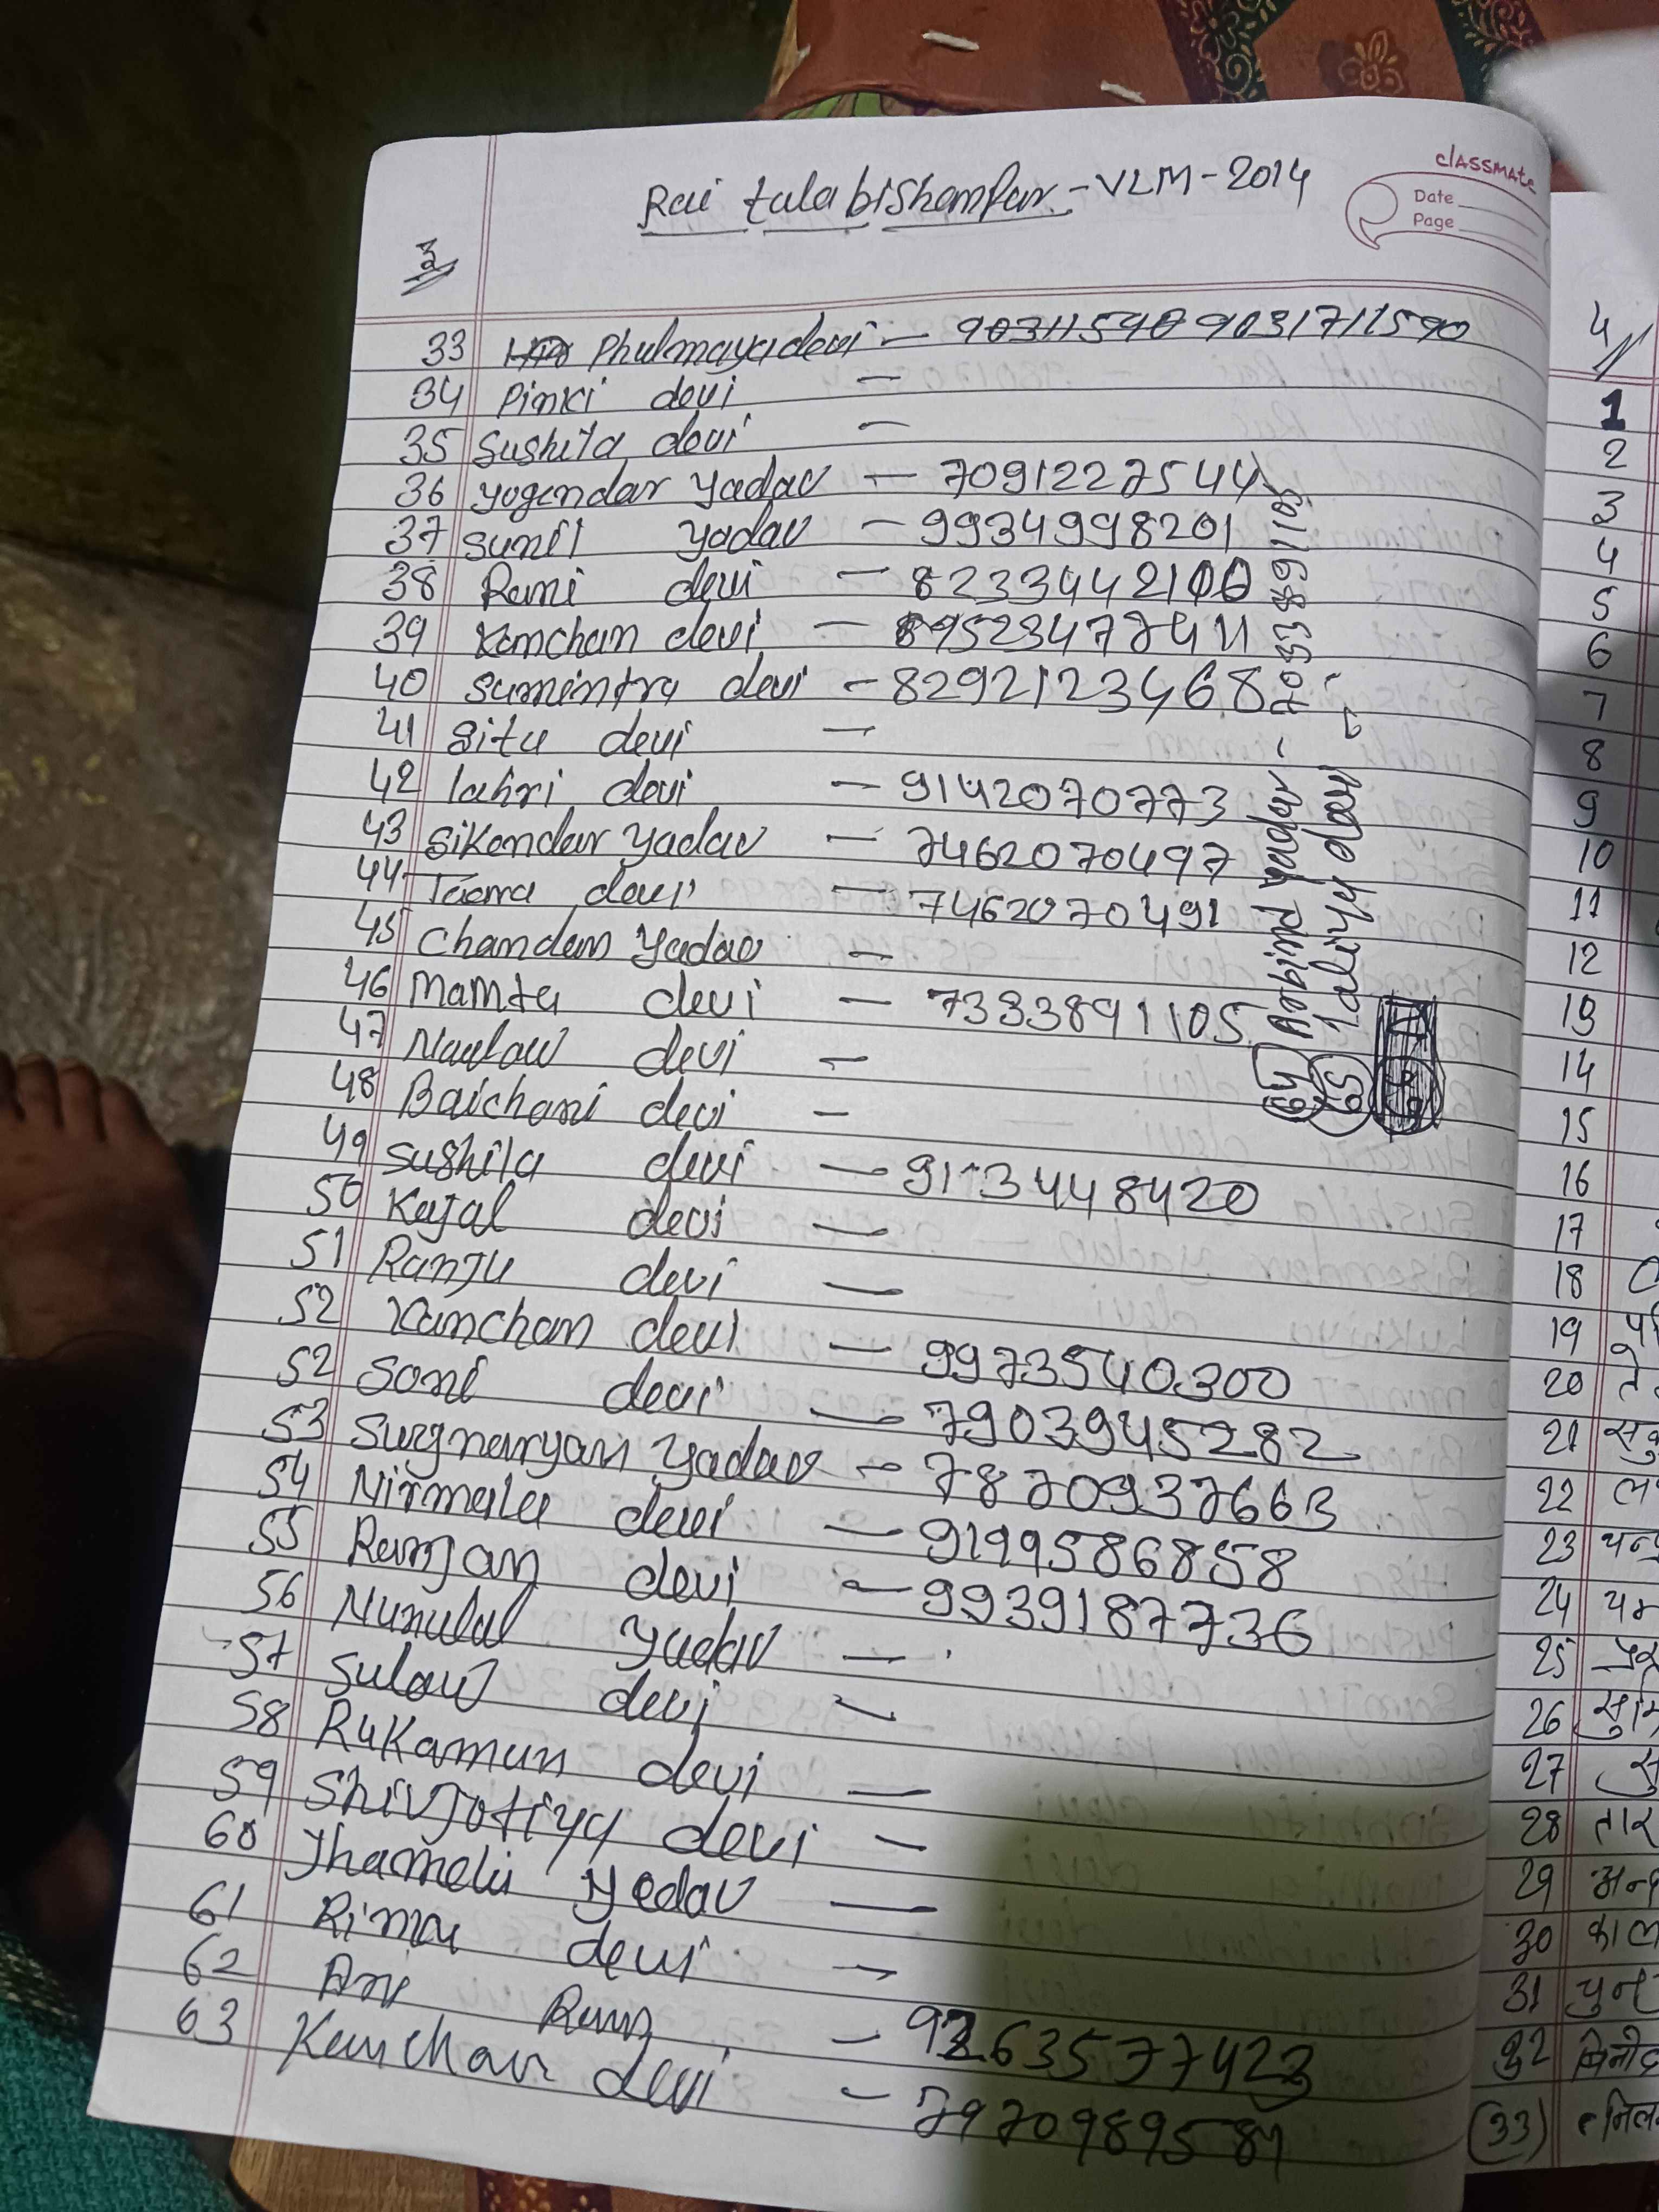 classmate
Date
Page
Rai tala bishanpur - VLM - 2014
3
33 Phulmaya devi - 9031711590
34 Pinki devi -
35 Sushila devi -
36 yogendar yadav - 7091227544
37 Sunil yadav - 9934998201
38 Rani devi - 8233442100
39 Kanchan devi -
40 Sumintra devi - 8292123468
41 Gita devi -
42 lahri devi - 9142070773
43 Sikandar yadav - 7462070497
44 devi - 7462070491
45 Chandan yadav -
46 Mamta devi - 7333891105
47 devi -
48 Baichani devi -
49 Sushila devi -
50 Kajal devi -
51 Ranju devi -
52 Kanchan devi - 9973540300
52 Soni devi - 7903945282
53 Surgnaryan yadav - 7870937663
54 Nirmala devi - 9199586858
55 Ranjan devi - 9939187736
56 Nunulal yadav -
57 devi -
58 Rukaman devi -
59 Shivjotiya devi -
60 yadav -
61 Rima devi -
62
63 Kanchan devi - 7970989581
64 Arbind yadav - 7033891105
65 laliya devi -
4
1
2
3
4
5
6
7
8
9
10
11
12
13
14
15
16
17
18
19
20
21
22
23
24
25
26
27
28
29
30
31
32
(33)